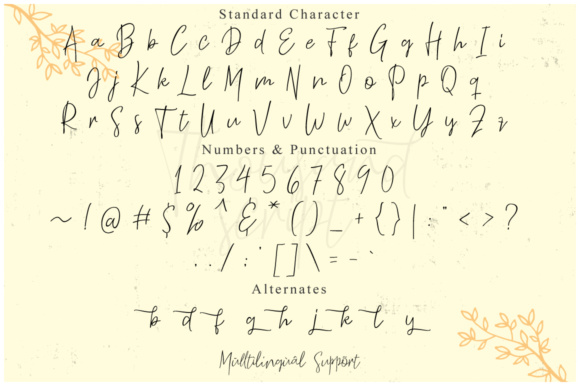 Standard Character
A a B b C c D d E e F f G g H h I i
J j K k L l M m N n O o P p Q q
R r S s T t U u V v W w X x Y y Z z
Numbers & Punctuation
1 2 3 4 5 6 7 8 9 0
~ ! @ # $ % ^ & * ( ) _ + { } | : " < > ?
. , / ; ' [ ] \ = - `
Alternates
b d f g h j k l y
Mulltilingual Support